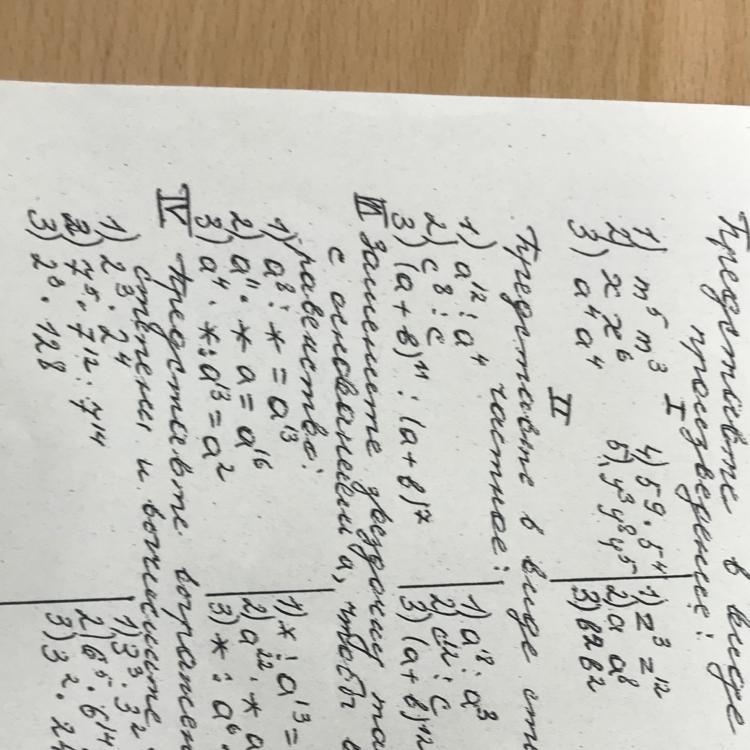 Представьте в виде
I
произведение:
1) m⁵ m³ 4) 5⁹ · 5⁴ 1) z³ z¹²
2) x x⁶ 5) y³ y⁸ y⁵ 2) a a⁸
3) a⁴ a⁴ 3) b² b²
II
Представьте в виде
частное:
1) a¹² : a⁴ 1) a¹⁸ : a³
2) c⁸ : c 2) c¹² : c
3) (a + b)¹¹ : (a + b)⁷ 3) (a + b)¹²
III Замените звездочки
с основанием a, чтобы
равенство:
1) a⁸ : * = a¹³ 1) * : a¹³ =
2) a¹¹ · * a = a¹⁶ 2) a²² · * a
3) a⁴ · * : a¹³ = a² 3) * : a⁶ ·
IV Представьте
степени и вычислите
1) 2³ · 2⁴ 1) 3³ · 3²
2) 7⁵ · 7¹² : 7¹⁴ 2) 6⁵ · 6¹⁴
3) 2⁸ · 128 3) 3² · 24